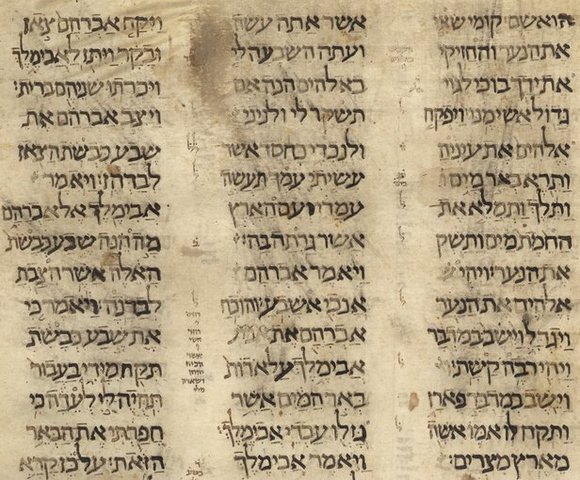 הוא שם קומי שאי
את הנער והחזיקי
את ידך בו כי לגוי
גדול אשימנו׃ ויפקח
אלהים את עיניה
ותרא באר מים
ותלך ותמלא את
החמת מים ותשק
את הנער׃ ויהי
אלהים את הנער
ויגדל וישב במדבר
ויהי רבה קשת׃
וישב במדבר פארן
ותקח לו אמו אשה
מארץ מצרים׃
אשר אתה עשה׃
ועתה השבעה לי
באלהים הנה אם
תשקר לי ולניני
ולנכדי כחסד אשר
עשיתי עמך תעשה
עמדי ועם הארץ
אשר גרתה בה׃
ויאמר אברהם
אנכי אשבע׃ והוכח
אברהם את
אבימלך על אדות
באר המים אשר
גזלו עבדי אבימלך׃
ויאמר אבימלך
ויקח אברהם צאן
ובקר ויתן לאבימלך
ויכרתו שניהם ברית׃
ויצב אברהם את
שבע כבשת הצאן
לבדהן׃ ויאמר
אבימלך אל אברהם
מה הנה שבע כבשת
האלה אשר הצבת
לבדנה׃ ויאמר כי
את שבע כבשת
תקח מידי בעבור
תהיה לי לעדה כי
חפרתי את הבאר
הזאת׃ על כן קרא